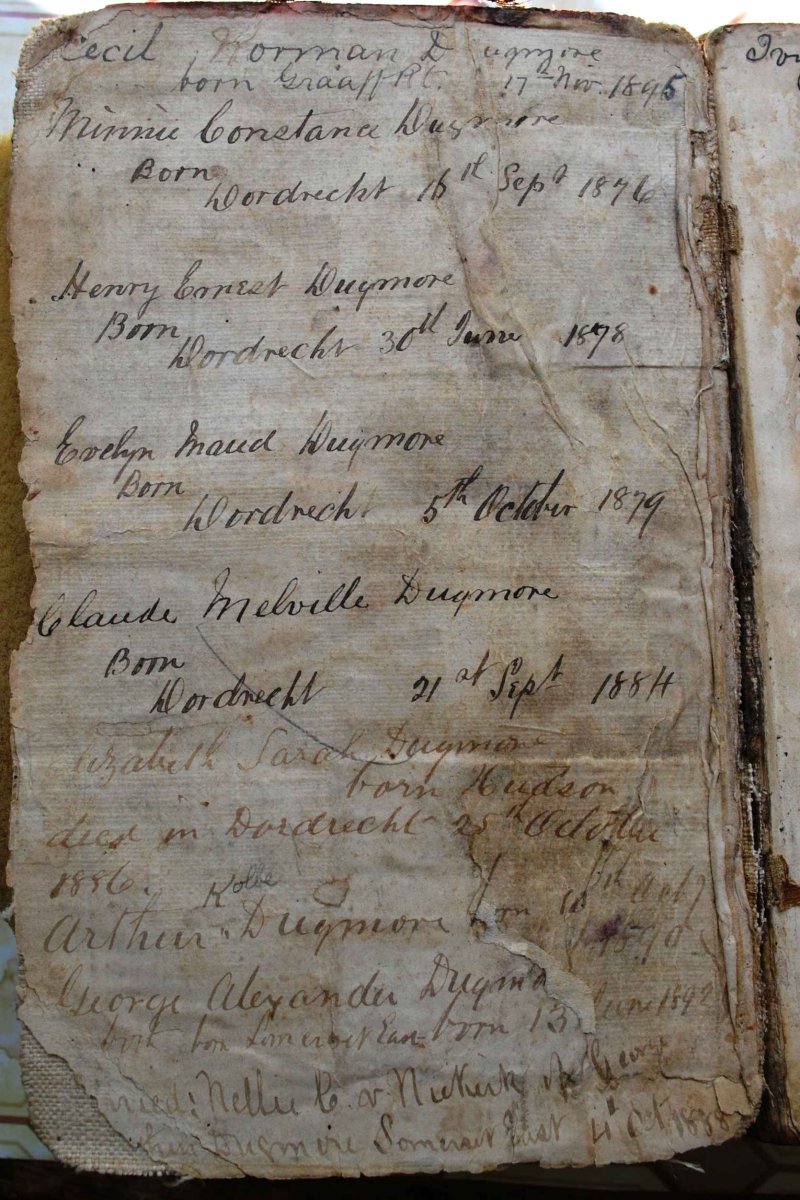 Cecil Norman Dugmore
born Graaff Rt. 17th Nov. 1895
Minnie Constance Dugmore
Born
Dordrecht 16th Sept 1876
Henry Ernest Dugmore
Born
Dordrecht 30th June 1878
Evelyn Maud Dugmore
Born
Dordrecht 5th October 1879
Claude Melville Dugmore
Born
Dordrecht 21st Sept 1884
Elizabeth Sarah Dugmore
born Hudson
died in Dordrecht 25th October
1886.
Kolbe
Arthur " Dugmore born Oct
1890
George Alexander Dugmore
born Somerset East born 13 June 1892
Nellie C. v. Niekerk George
Dugmore Somerset East 4th Oct 1888